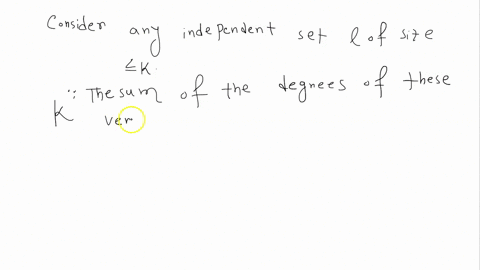 Consider any independent set l of size
≤K.
∵ The sum of the degrees of these
K ver